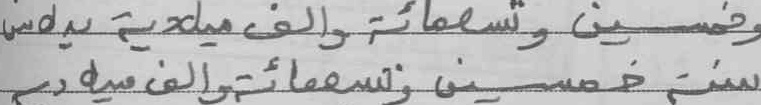 وخمسين وتسعمائة والف ميلادية
سنة خمسين وتسعمائة والف